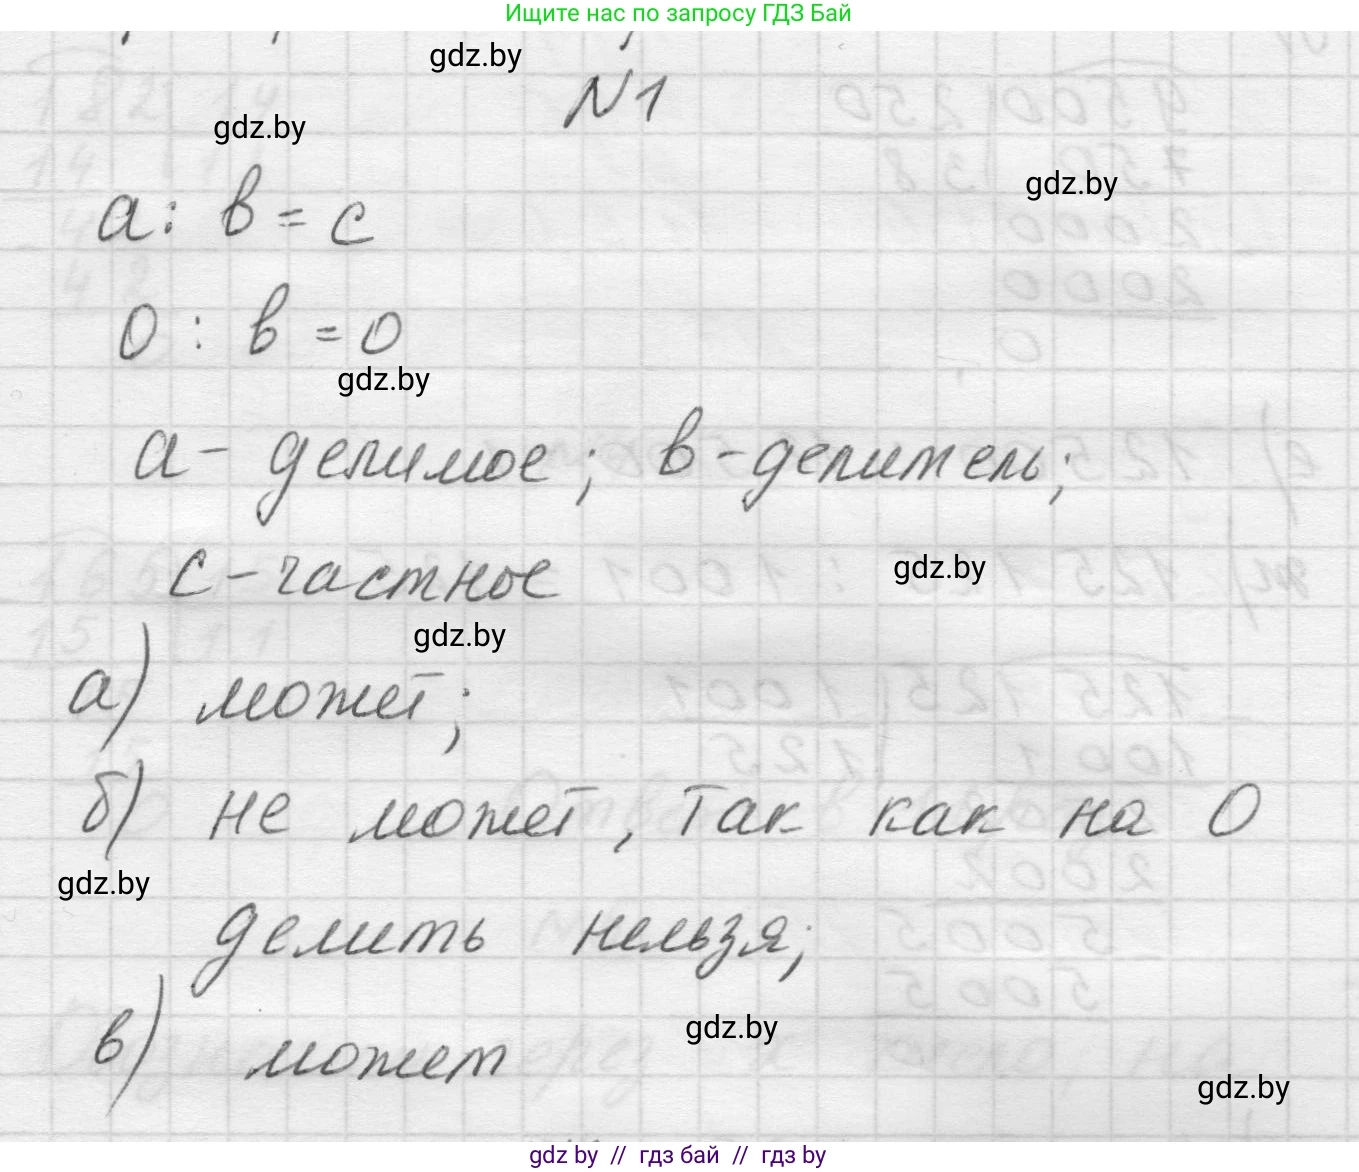 Ищите нас по запросу ГДЗ Бай
gdz.by
N1
gdz.by
gdz.by
а : в = с
0 : в = 0
gdz.by
а - делимое; в - делитель;
с - частное
gdz.by
gdz.by
а) может;
б) не может, так как на 0
gdz.by
делить нельзя;
gdz.by
в) может
gdz.by
gdz by // гдз бай // гдз by